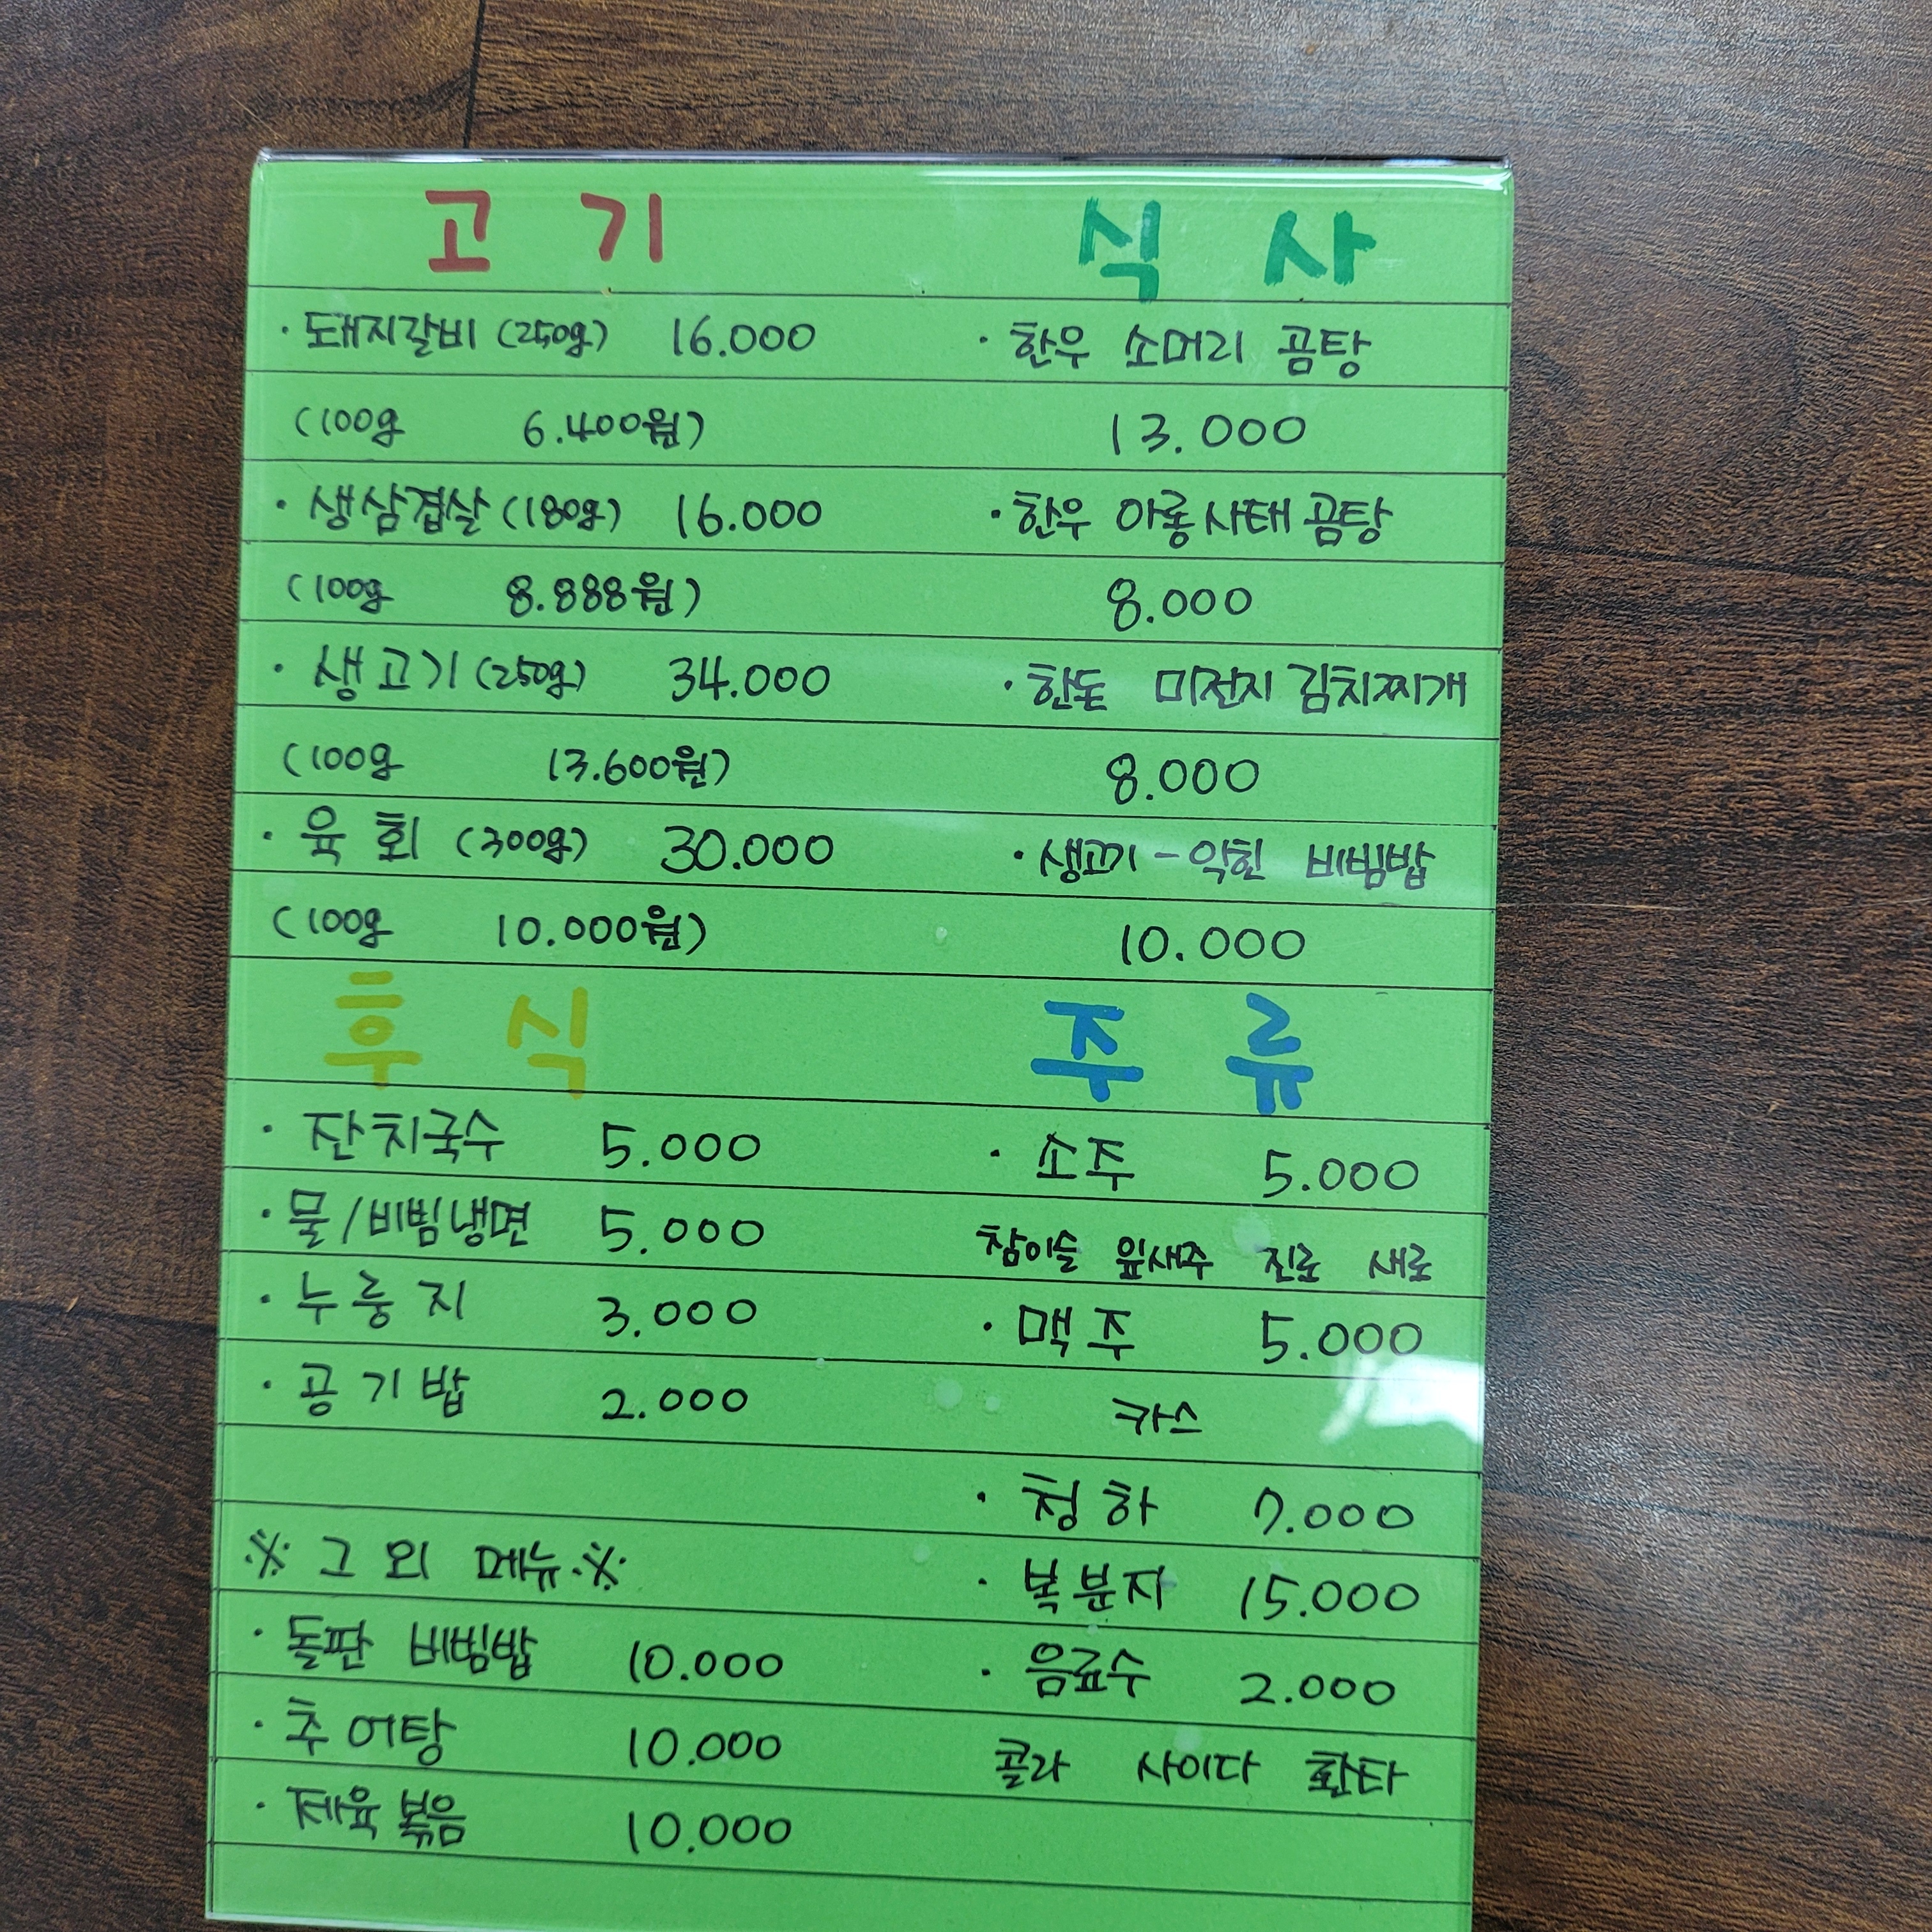 고기
· 돼지갈비 (250g) 16.000
(100g 6.400원)
· 생삼겹살 (180g) 16.000
(100g 8.888원)
· 생고기 (250g) 34.000
(100g 13.600원)
· 육회 (300g) 30.000
(100g 10.000원)
식사
· 한우 소머리 곰탕
13.000
· 한우 아롱사태 곰탕
8.000
· 한돈 미전지 김치찌개
8.000
· 생고기 - 익힌 비빔밥
10.000
후식
· 잔치국수 5.000
· 물/비빔냉면 5.000
· 누룽지 3.000
· 공기밥 2.000
※ 그 외 메뉴 ※
· 돌판 비빔밥 10.000
· 추어탕 10.000
· 제육볶음 10.000
주류
· 소주 5.000
참이슬 잎새주 진로 새로
· 맥주 5.000
카스
· 청하 7.000
· 복분자 15.000
· 음료수 2.000
콜라 사이다 환타